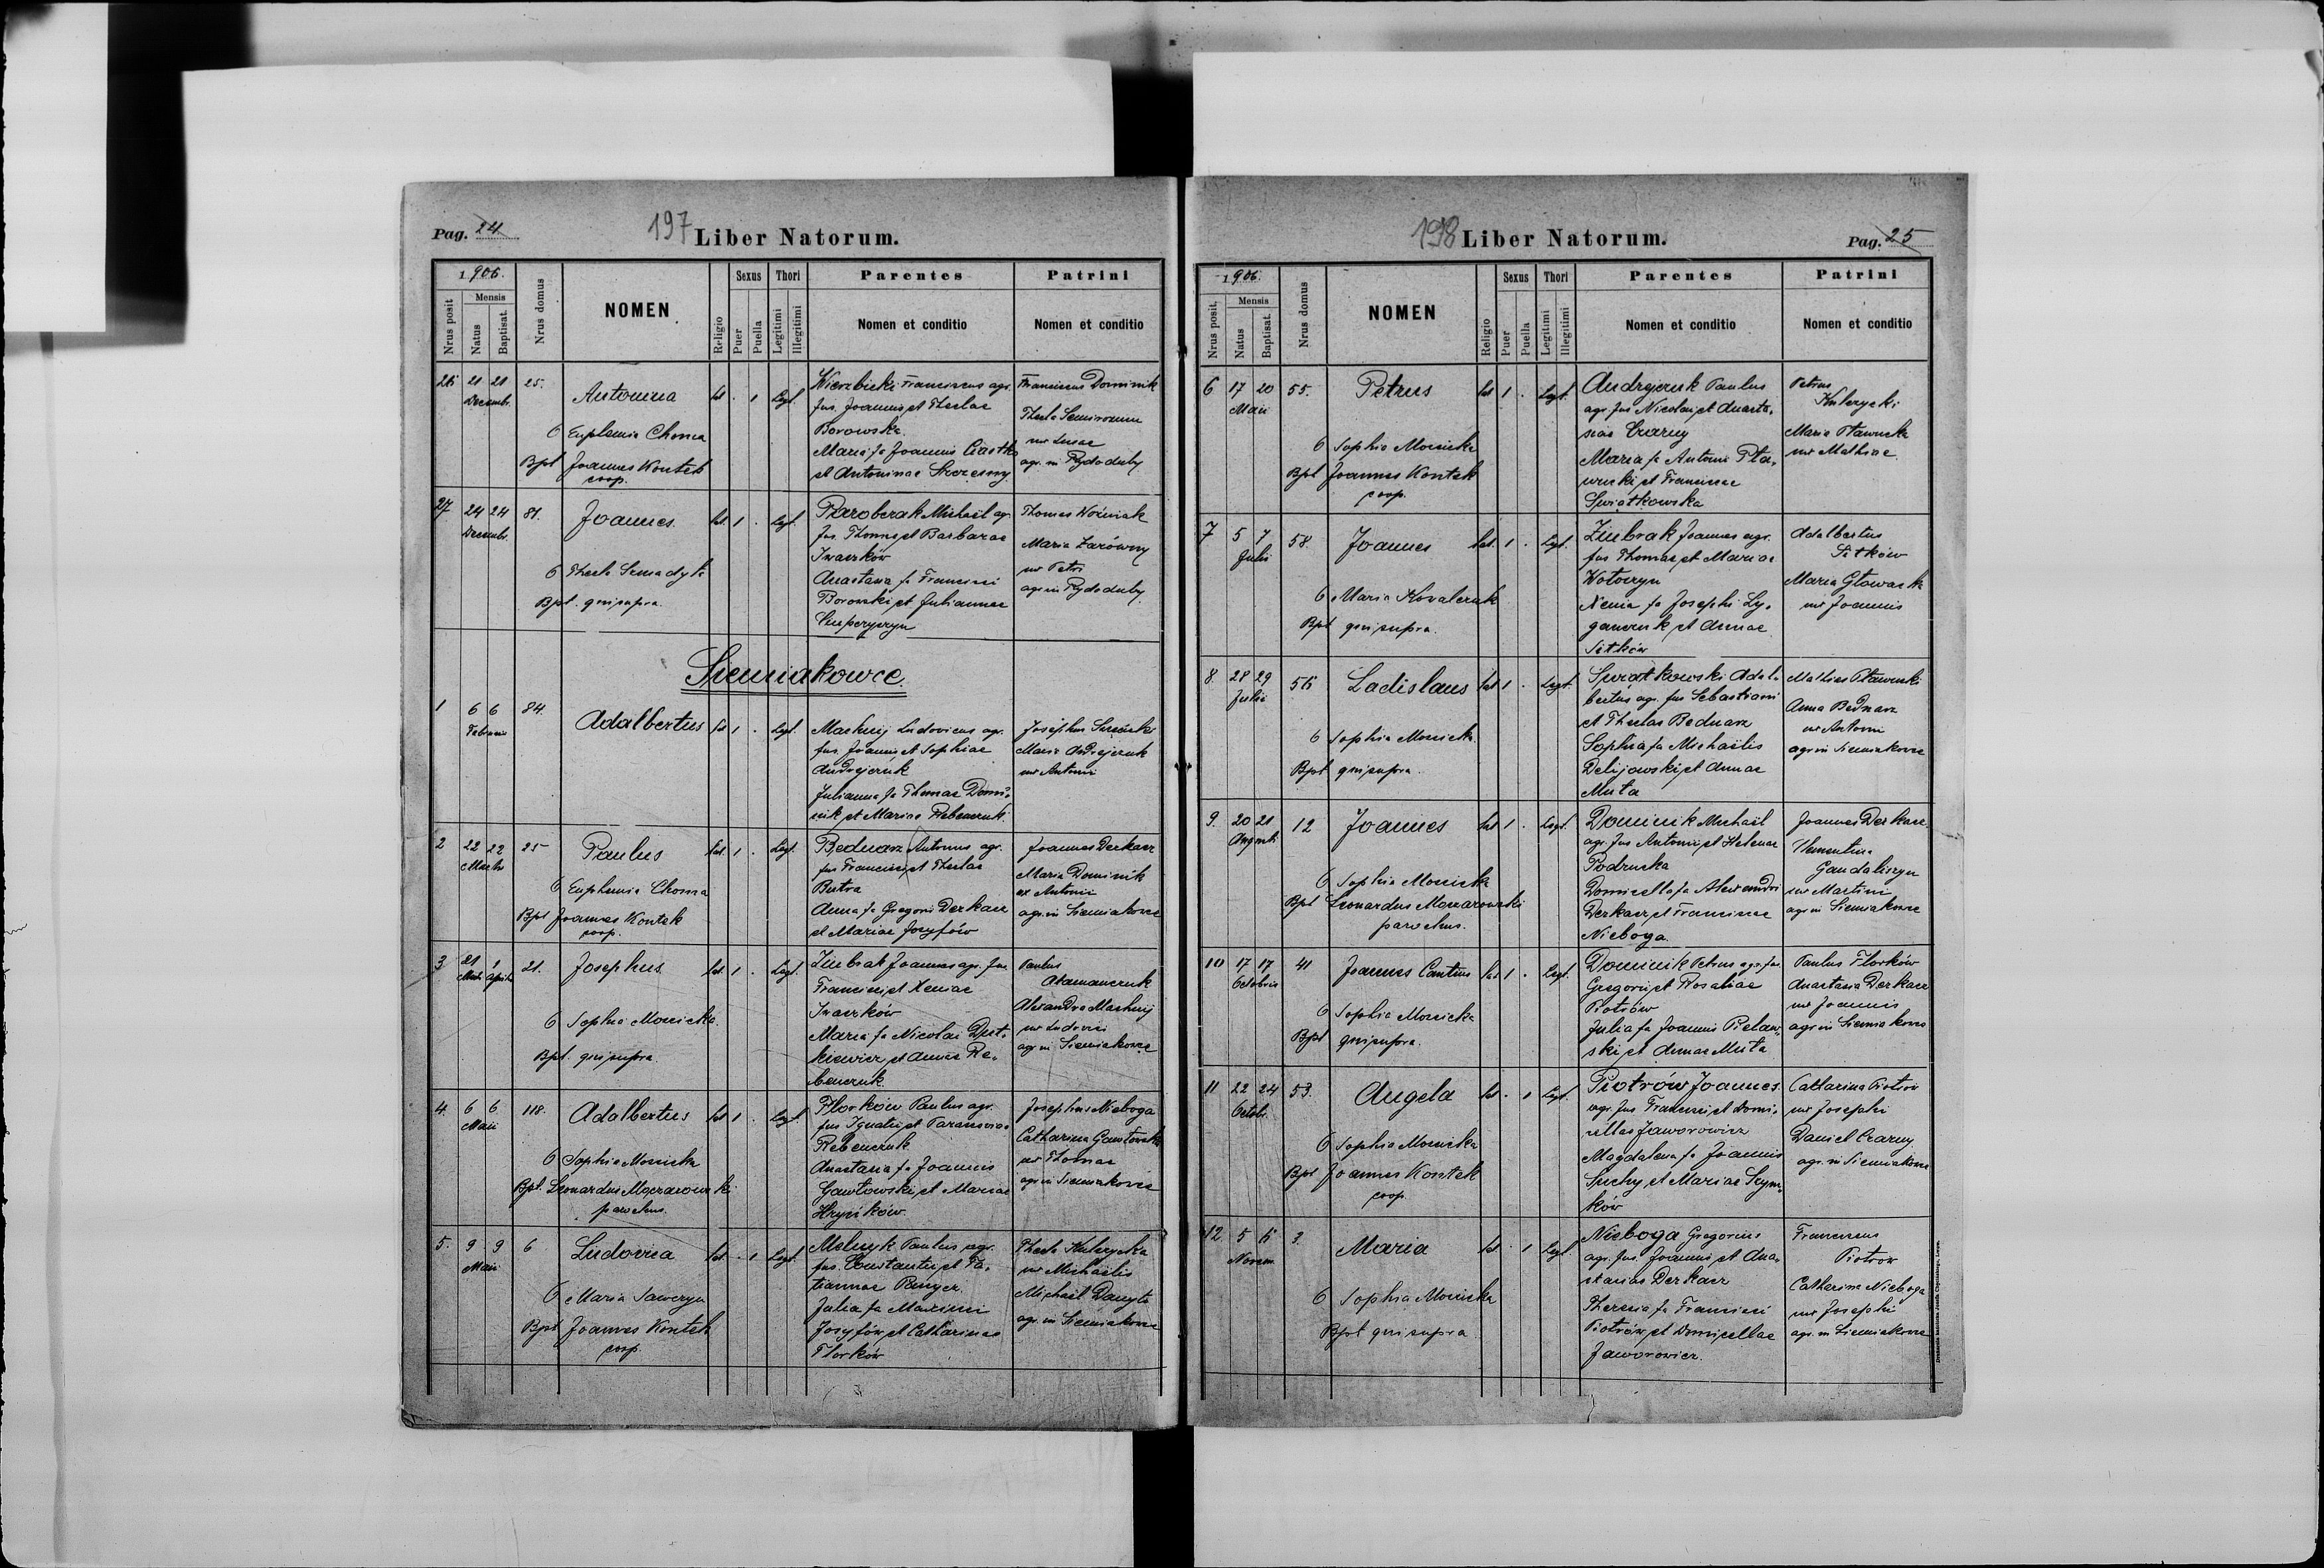 Pag. 24
197 Liber Natorum.
1906.
Nrus posit
Mensis
Natus
Baptisat.
Nrus domus
NOMEN
Religio
Sexus
Puer
Puella
Thori
Legitimi
Illegitimi
Parentes
Nomen et conditio
Patrini
Nomen et conditio
26 21 21 25. Antonina lat . 1 Legt.
Decembr.
O Euphemia Choma
Bpt Joannes Kontek
coop.
Wierzbicki Franciscus agr.
fus. Joannis et Theclae
Borowska.
Maria fa Joannis Ciastko
et Antoninae Szczesny
Franciscus Dominik
Thecla
ux Lucae
agr. in Rydoduby
27 24 24 81. Joannes. lat. 1 . Legt.
Decembr.
O Thecla
Bpt. qui supra.
Paroberak Michael agr
fus. Thomae et Barbarae
Iwaszków
Anastasia fa Francisci
Borowski et Juliannae
Thomas Woźniak
Maria Zarówny
ux Petri
agr. in Rydoduby
Siemiakowce.
1 6 6 84. Adalbertus lat 1 . Legt.
Februarii
Mackuij Ludovicus agr.
fus. Joannis et Sophiae
Andrejczuk
Julianna fa Thomae Domi-
nik et Mariae Rebenczuk.
Josephus
Maria Andrejczuk
ux Antonii
2 22 22 25 Paulus lat. 1 . Legt.
Martii
O Euphemia Choma
Bpt Joannes Kontek
coop.
Bednarz Antonius agr.
fus Francisci et Theclae
Butra
Anna fa Gregorii Derkacz
et Mariae Josyfów
Joannes Derkacz
Maria Dominik
ux Antonii
agr. in Siemiakowce
3 21 1 21. Josephus lat. 1 . Legt.
Martii Aprilis
O Sophia Mosicka.
Bpt. qui supra.
Zimbrak Joannes agr. fus.
Francisci et Xeniae
Iwaszków
Maria fa Nicolai Dut-
kiewicz et Annae Re-
benczuk.
Paulus
Adamanczuk
Alexandra Mackuij
ux Ludovici
agr. in Siemiakowce
4. 6 6 118. Adalbertus lat 1 . Legt.
Maii
O Sophia Mosicka
Bpt. Leonardus Mazarowski
parochus.
Florków Paulus agr.
fus Ignatii et Parasceviae
Rebenczuk
Anastasia fa Joannis
Gawłowski et Mariae
Hryńków.
Josephus Nieboga
Catharina Gawłowska
ux Thomae
agr. in Siemiakowce
5. 9 9 6 Ludovica lat. . 1 Legt.
Maii
O Maria Saweryn
Bpt Joannes Kontek
coop.
Melnyk Paulus agr.
fus. Constantii et Ta-
tiannae Panycz.
Julia fa Maximi
Josyfów et Catharinae
Florków
Thecla Kulczycka
ux Michaëlis
Michael Danyło
agr. in Siemiakowce
198 Liber Natorum.
Pag. 25
1906.
Nrus posit.
Mensis
Natus
Baptisat.
Nrus domus
NOMEN
Religio
Sexus
Puer
Puella
Thori
Legitimi
Illegitimi
Parentes
Nomen et conditio
Patrini
Nomen et conditio
6 17 20 55. Petrus lat 1 . Legt.
Maii
O Sophia Mosicka
Bpt Joannes Kontek
coop.
Andrejczuk Paulus
agr. fus Nicolai et Anasta-
siae Czarny
Maria fa Antonii Pła-
wucki et Franciscae
Swiątkowska
Petrus
Kulczycki
Maria Pławucka
ux Mathiae.
7 5 7 58. Joannes lat. 1 . Legt.
Julii
O Maria Kowalczuk
Bpt qui supra.
Zimbrak Joannes agr.
fus Thomae et Mariae
Wołoszyn
Xenia fa Josephi Ly-
ganczuk et Annae
Sitków
Adalbertus
Sitków
Maria Głowacka
ux Joannis
8. 28 29 56 Ladislaus lat 1 . Legt.
Julii
O Sophia Mosicka.
Bpt qui supra.
Swiątkowski Adal-
bertus agr. fus Sebastiani
et Theclae Bednarz
Sophia fa Michaëlis
Delijowski et Annae
Muta
Mathias Pławucki
Anna Bednarz
ux Antonii
agr. in Siemiakowce
9. 20 21 12 Joannes lat 1 . Legt.
Augusti
O Sophia Mosicka
Bpt Leonardus Mazarowski
parochus.
Dominik Michael
agr. fus Antonii et Helenae
Podrucka
Domicella fa Alexandri
Derkacz et Franciscae
Nieboga.
Joannes Derkacz.
Clementina
Gandaliszyn
ux Martini
agr. in Siemiakowce
10 17 17 41 Joannes Cantius lat 1 . Legt.
Octobris
O Sophia Mosicka
Bpt qui supra.
Dominik Petrus agr. fus.
Gregorii et Rosaliae
Piotrów
Julia fa Joannis Pielaw-
ski et Annae Muta
Paulus Florków
Anastasia Derkacz
ux Joannis
agr. in Siemiakowce
11 22 24 53. Angela lat . 1 Legt.
Octobr.
O Sophia Mosicka
Bpt Joannes Kontek
coop.
Piotrów Joannes.
agr. fus Francisci et Domi-
cellae Jaworowicz
Magdalena fa Joannis
Suchy et Mariae Szym-
ków
Catharina Piotrów
ux Josephi
Daniel Czarny
agr. in Siemiakowce
12. 5 6 3. Maria lat . 1 Legt.
Novem.
O Sophia Mosicka
Bpt qui supra.
Nieboga Gregorius
agr. fus Joannis et Ana-
stasiae Derkacz
Theresia fa Francisci
Piotrów et Domicellae
Jaworowicz.
Franciscus
Piotrów
Catharina Nieboga
ux Josephi
agr. in Siemiakowce